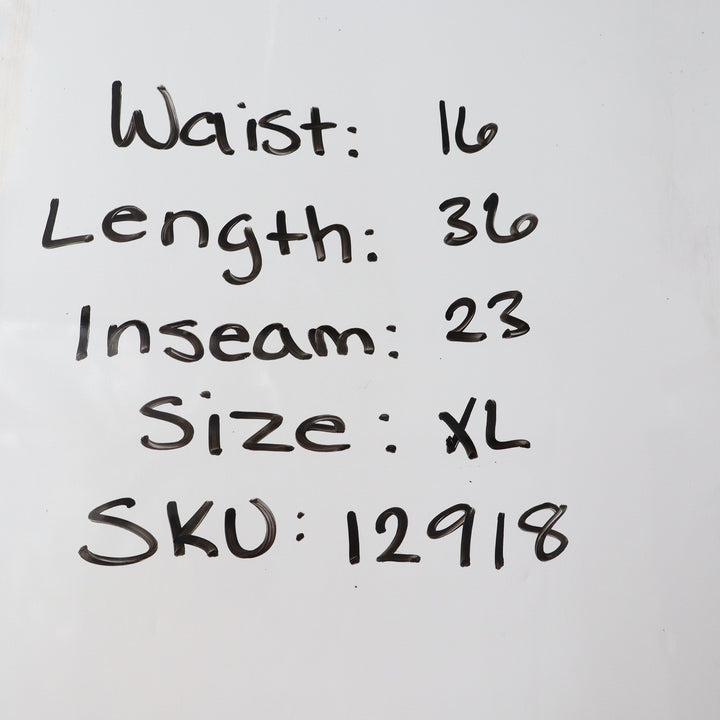 Waist: 16
Length: 36
Inseam: 23
Size: XL
SKU: 12918